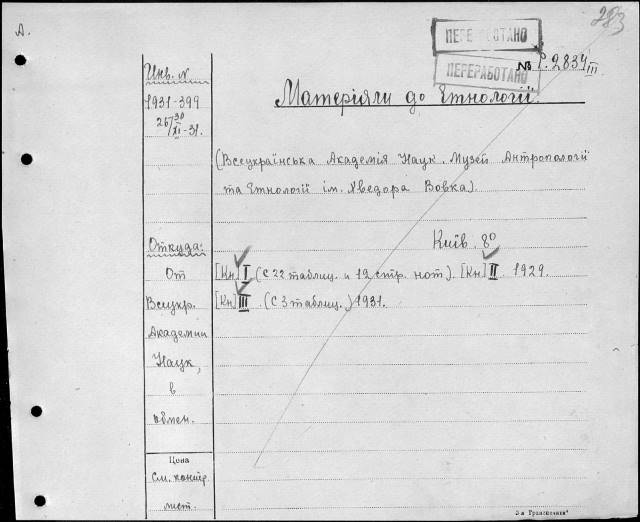 А.
283
ПЕРЕРАБОТАНО
ПЕРЕРАБОТАНО
№ Р. 2834 III
Инв. N
1931-399
26/30 XI-31.
Матеріяли до Етнології.
(Всеукраїнська Академія Наук. Музей Антропології
та Етнології ім. Хведора Вовка).
Київ. 8°
Откуда:
От
Всеукр.
Академии
Наук,
в
обмен.
[Кн] I (с 22 таблиц. и 12 стр. нот). [Кн] II. 1929.
[Кн] III. (с 3 таблиц.) 1931.
Цена
см. контр.
лист.